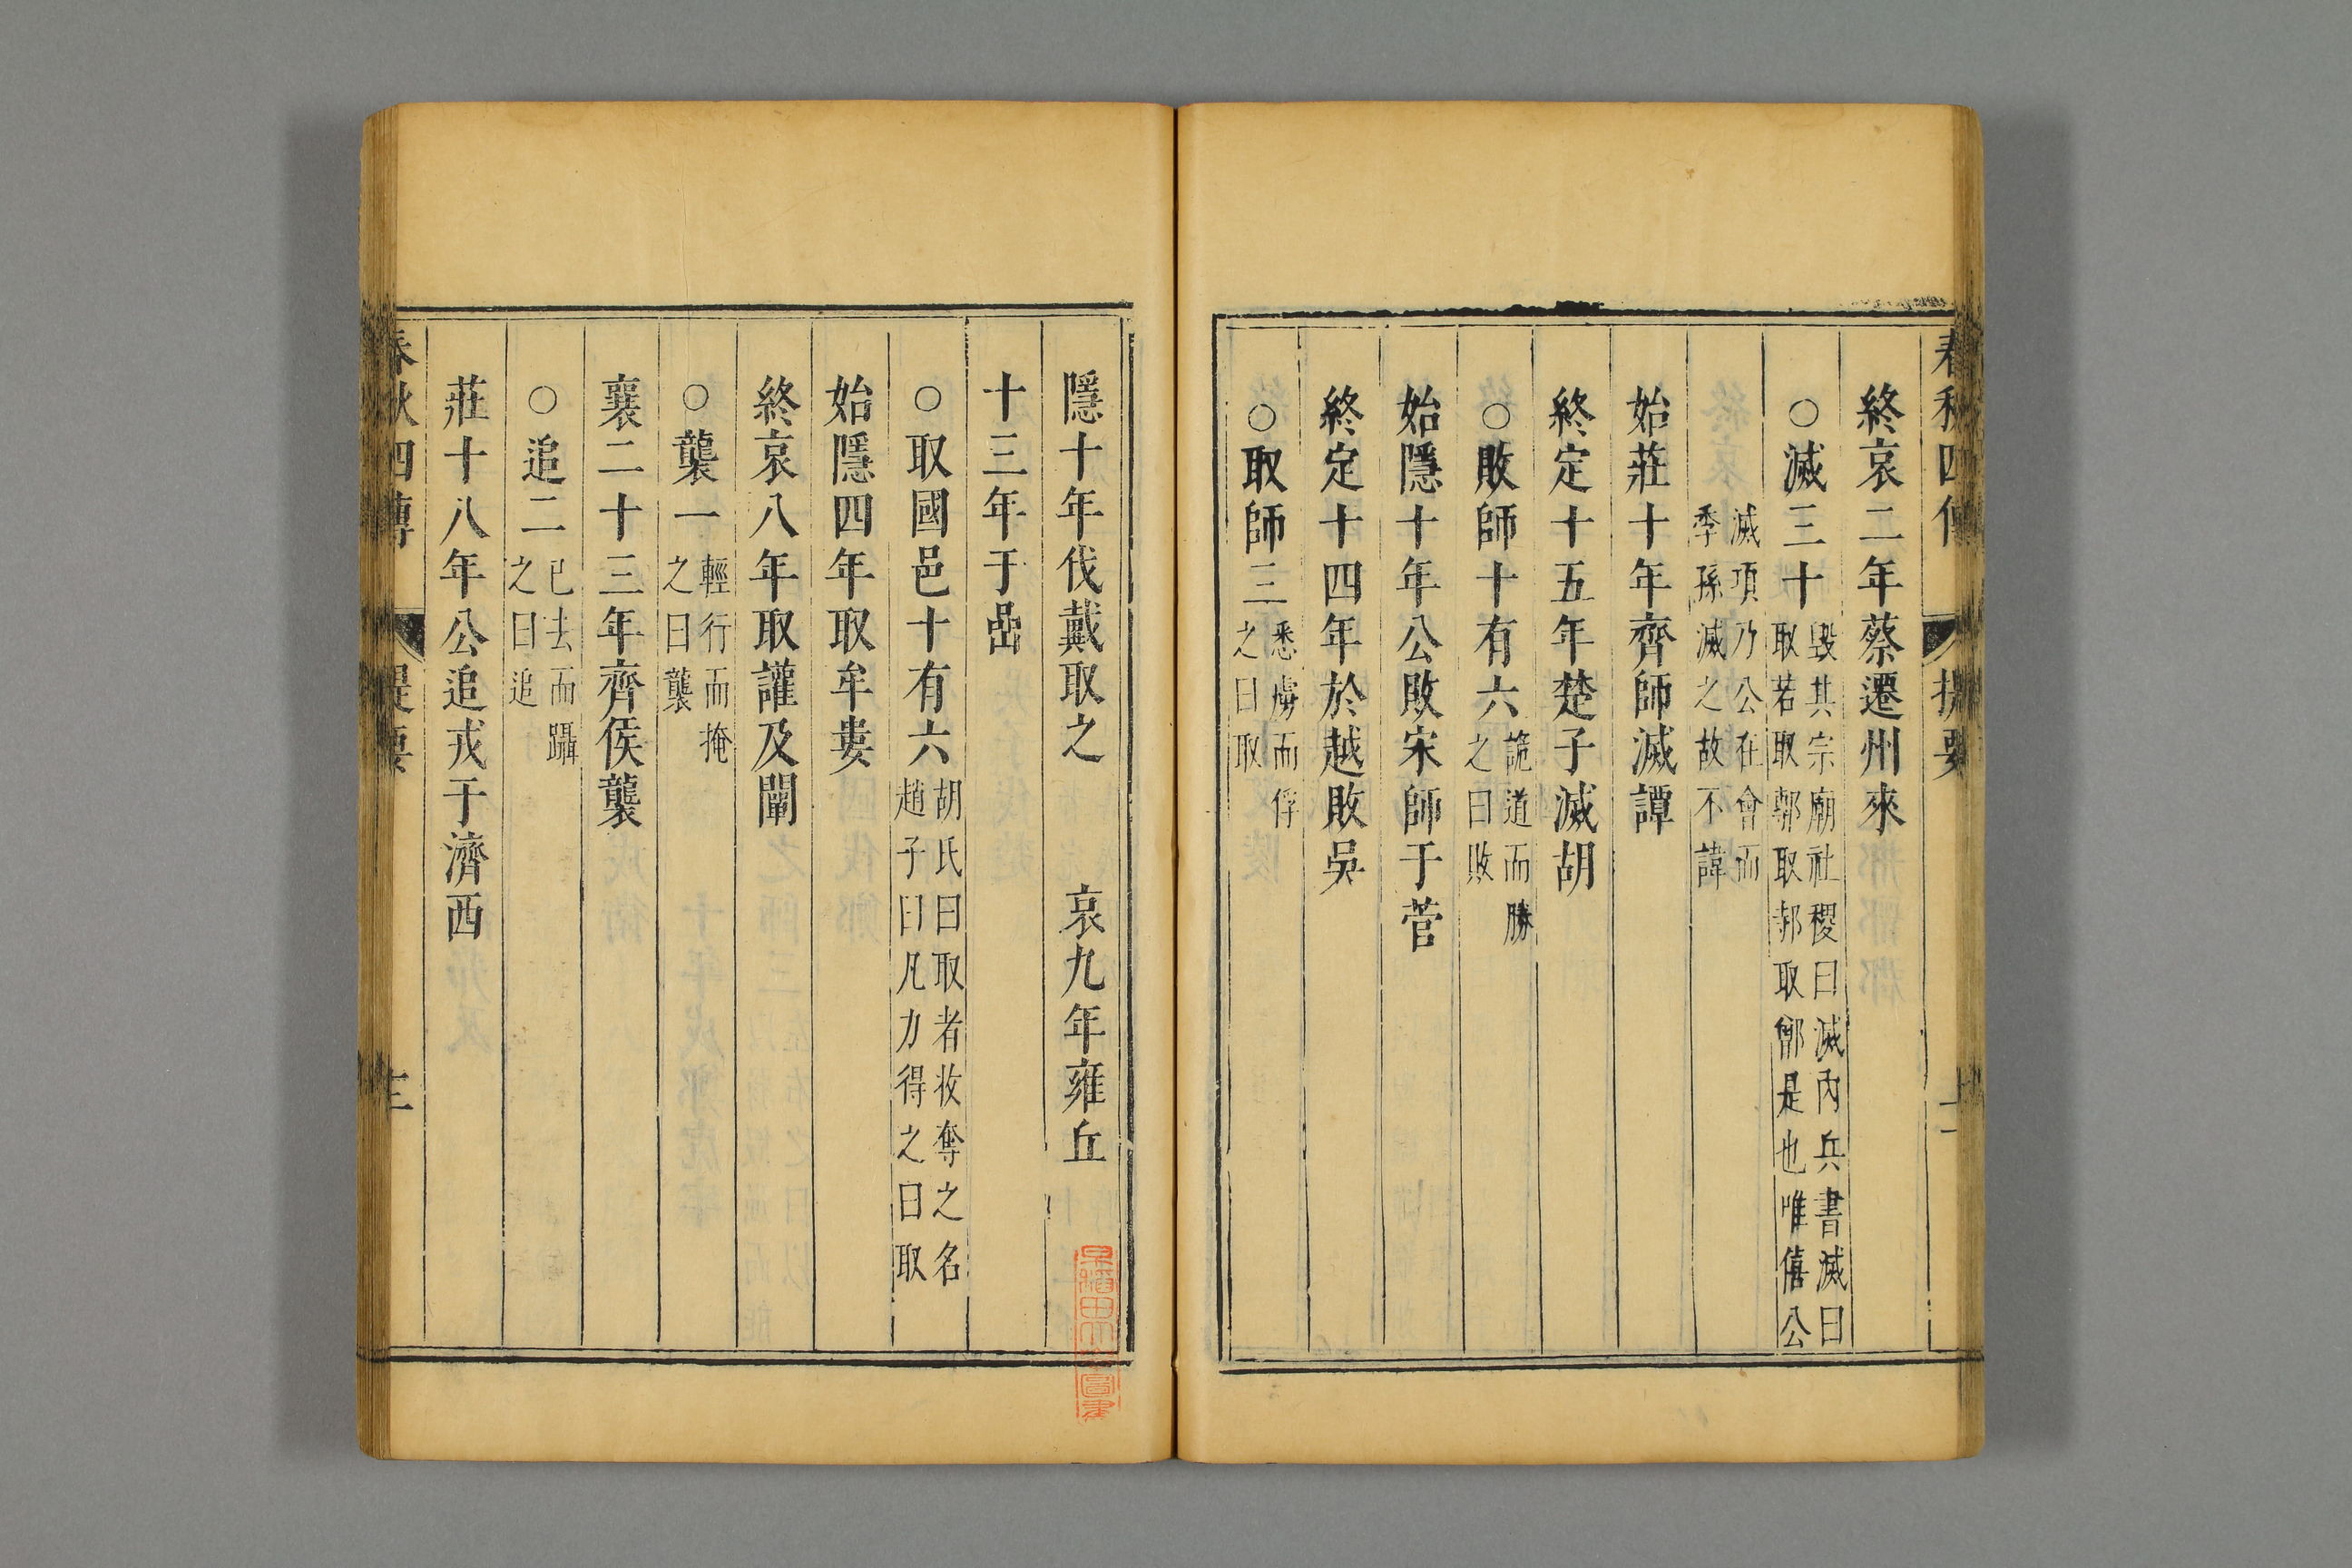 終哀二年蔡遷州來
○滅三十毀其宗廟社稷曰滅內兵書滅曰
取若取鄟取邿取鄫是也唯僖公
滅項乃公在會而
季孫滅之故不諱
始莊十年齊師滅譚
終定十五年楚子滅胡
○敗師十有六詭道而勝
之曰敗
始隱十年公敗宋師于菅
終定十四年於越敗吳
○取師三悉虜而俘
之曰取
隱十年伐戴取之　哀九年雍丘
十三年于嵒
○取國邑十有六胡氏曰取者收奪之名
趙子曰凡力得之曰取
始隱四年取牟婁
終哀八年取讙及闡
○襲一輕行而掩
之曰襲
襄二十三年齊侯襲
○追二已去而躡
之曰追
莊十八年公追戎于濟西
春秋四傳
提要